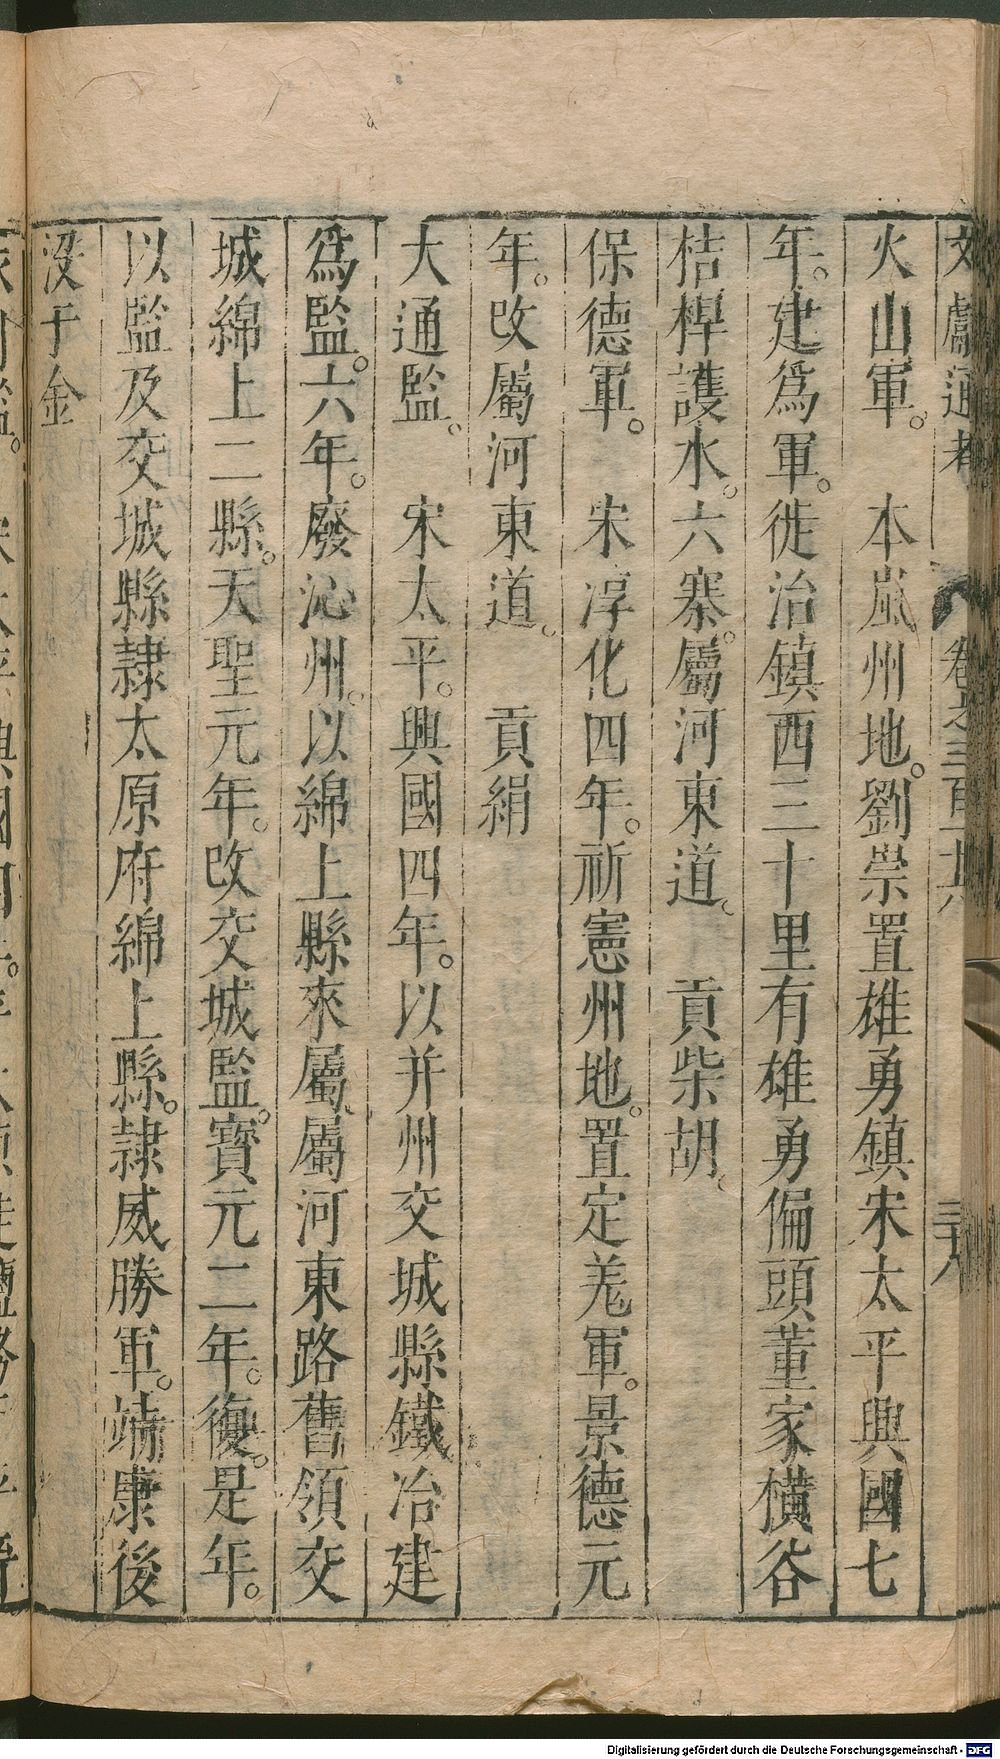 文獻通考 卷之三百十六 三十八
火山軍。 本嵐州地。劉崇置雄勇鎮宋太平興國七
年。建爲軍。徙治鎮西三十里有雄勇偏頭董家橫谷
桔槔護水。六寨。屬河東道。 貢柴胡。
保德軍。 宋淳化四年。祈憲州地。置定羗軍。景德元
年。改屬河東道。 貢絹
大通監。 宋太平。興國四年。以并州交城縣鐵冶建
爲監。六年。廢沁州。以綿上縣來屬。屬河東路舊領交
城綿上二縣。天聖元年。改交城監。寶元二年。復。是年。
以監及交城縣隷太原府綿上縣。隷威勝軍。靖康後
没于金